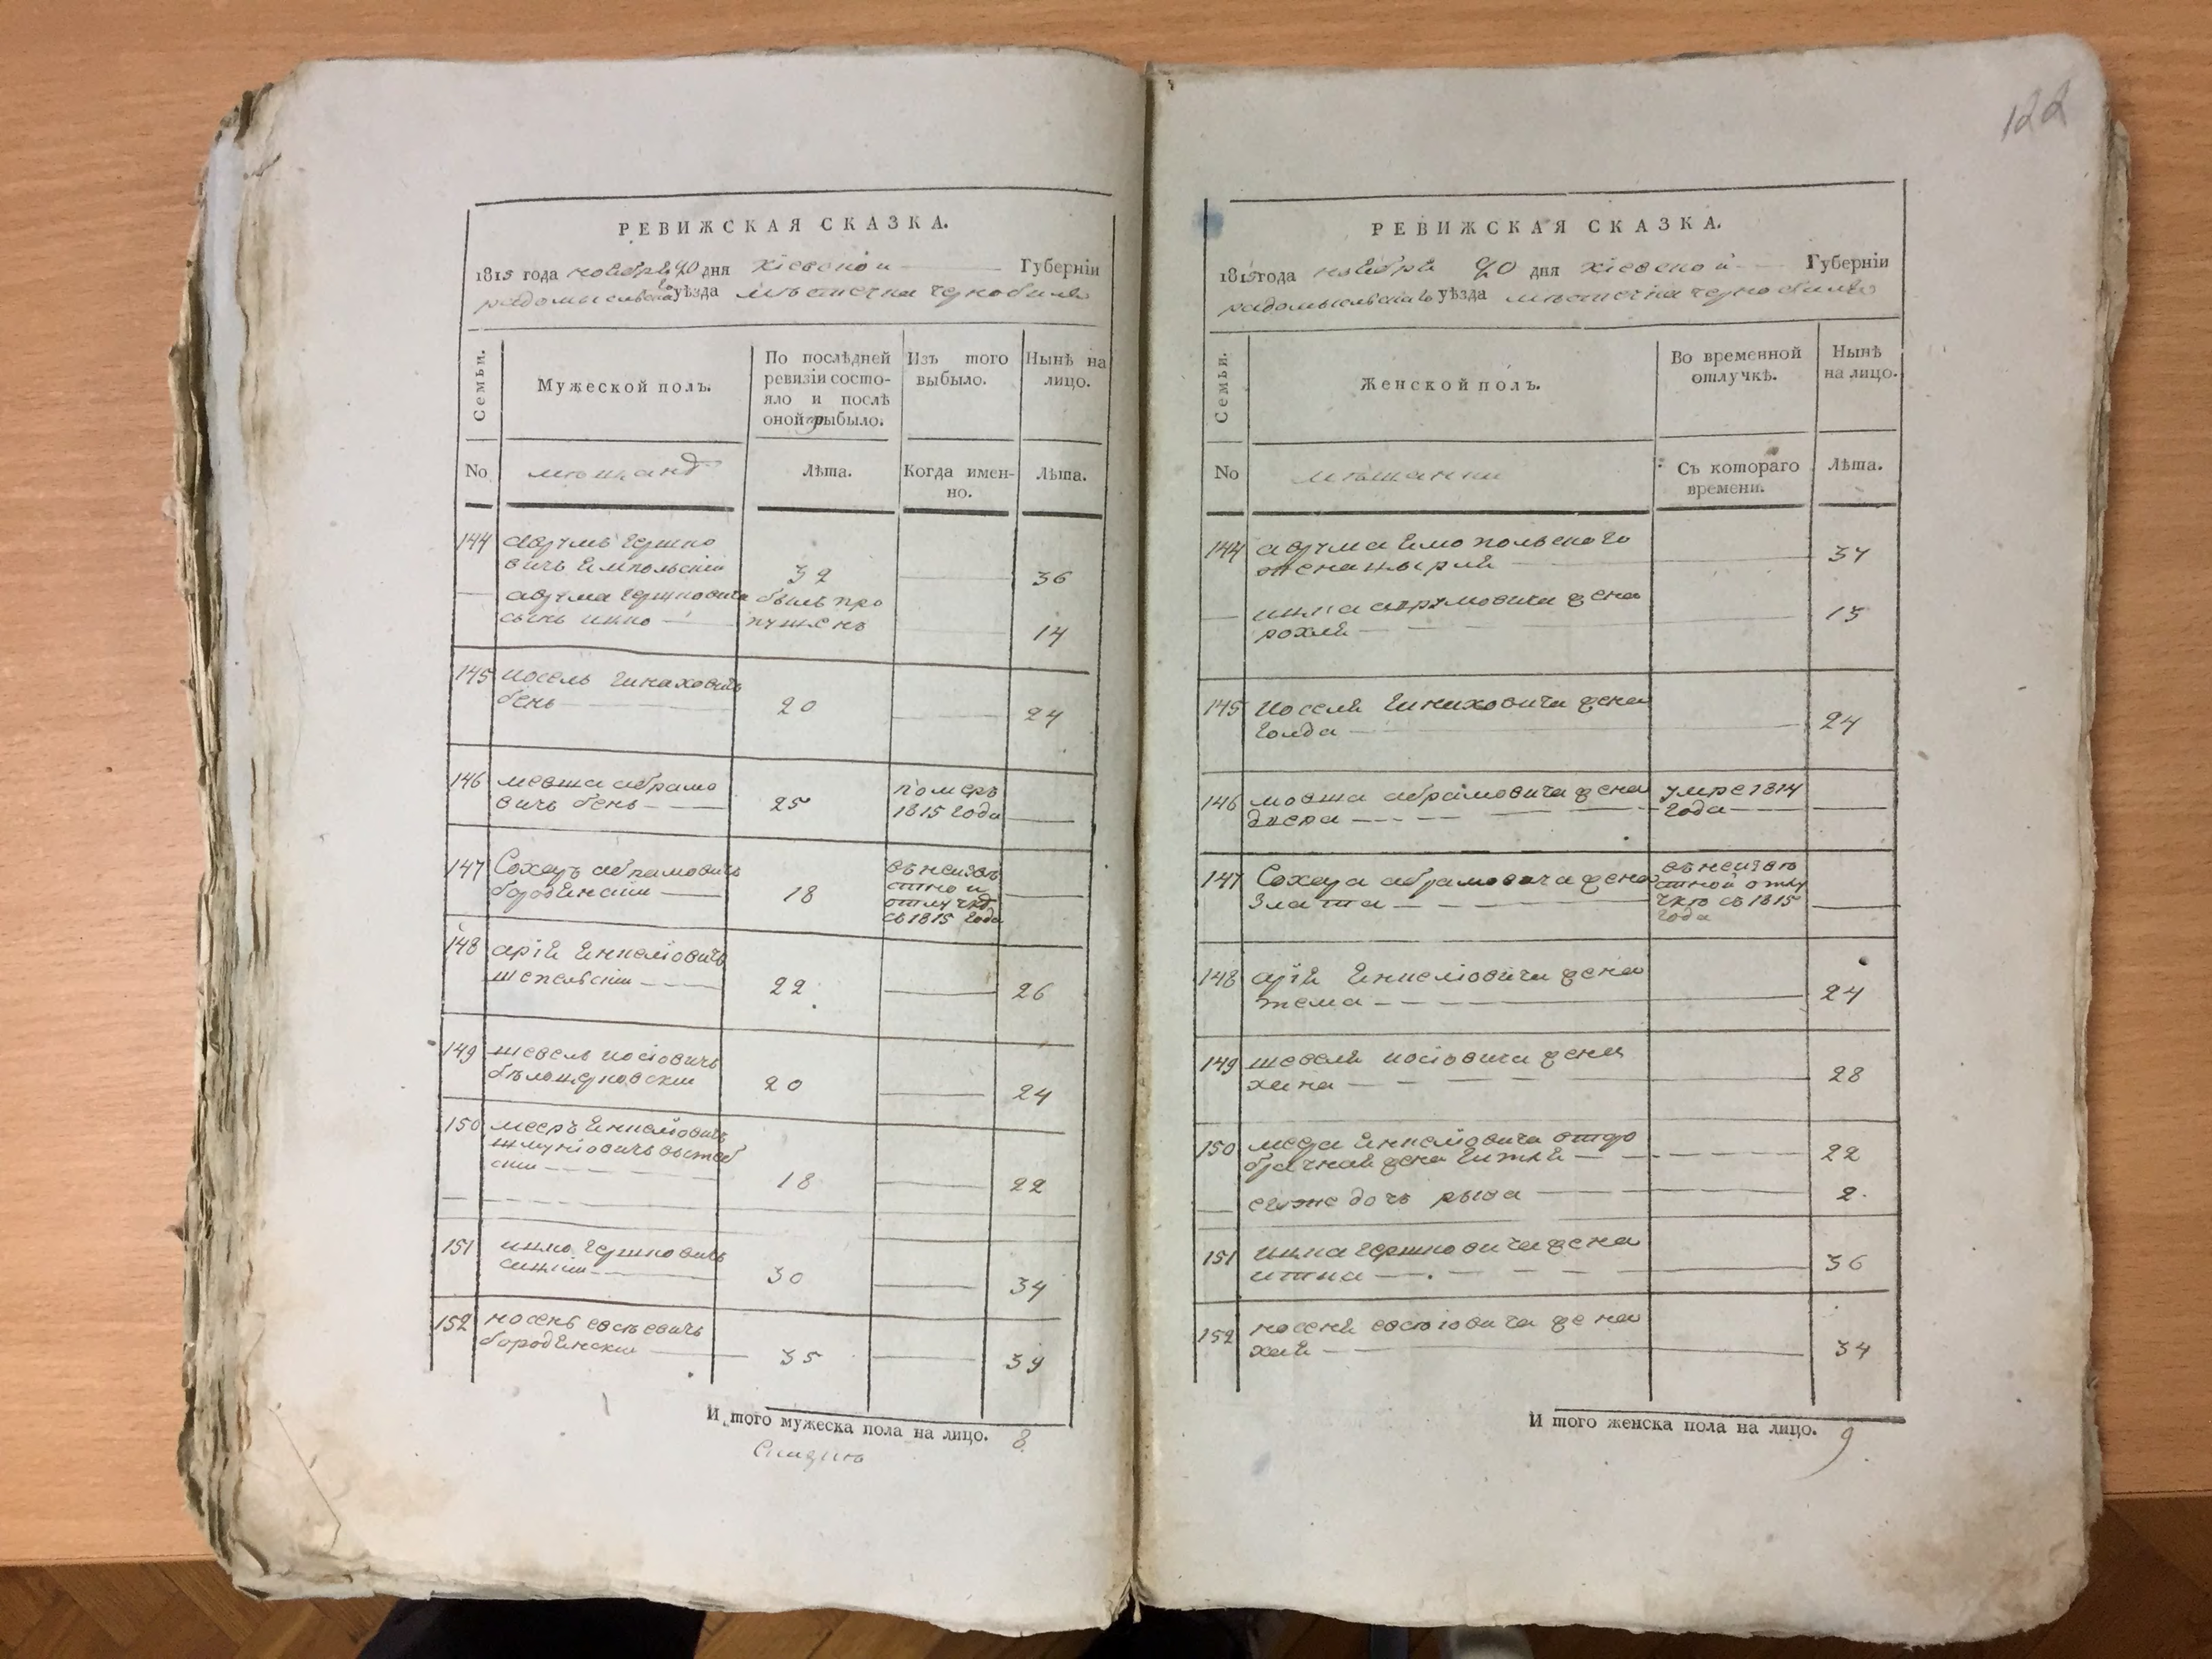 122
РЕВИЖСКАЯ СКАЗКА.
1815 года ноября 20 дня кіевскои Губерніи
радомысльскаго уѣзда мѣстечка чернобиля
Семьи.
Мужеской полъ.
По послѣдней
ревизіи состо-
яло и послѣ
оной прибыло.
Изъ того
выбыло.
Нынѣ на
лицо.
No
мѣщанѣ
Лѣта.
Когда имен-
но.
Лѣта.
144 аврумъ гершко
вичъ ямпольскіи 32 36
аврума гершковича былъ про
сынъ ицко пущенъ 14
145 иосель гинаховичъ
бень 20 24
146 мовша абрамо
вичъ бень 25
померъ
1815 года
147 Сохаръ абрамовичъ
бородянскіи 18
въ неизвѣ
стнои
отлучкѣ
съ 1815 года
148 арія янкеліовичъ
шепельскіи 22 26
149 шевель иосіовичъ
бѣлоцерковскіи 20 24
150 мееръ янкеліовичъ
18 22
151 ицко гершковичъ
30 34
152 носенъ евсѣевичъ
бородянскіи 35 39
И того мужеска пола на лицо. 8
РЕВИЖСКАЯ СКАЗКА.
1815 года ноября 20 дня кіевскои Губерніи
радомысльскаго уѣзда мѣстечка чернобиля
Семьи.
Женской полъ.
Во временной
отлучкѣ.
Нынѣ
на лицо.
No
мѣщанки
Съ котораго
времени.
Лѣта.
144 аврума ямпольского
жена цырля 34
ицка аврумовича жена
рохля 15
145 иоселя гинаховича жена
голда 24
146 мовша абрамовича жена умре 1814
двера года
147 Сохара абрамовича жена
Злата
въ неизвѣ
стной отлу
чкѣ съ 1815
года
148 арія янкеліовича жена
24
149 шевеля иосіовича жена
хана 28
150 меера янкеліовича второ
брачная жена гитля 22
ея же дочь рыва 2
151 ицка гершковича жена
итка 36
152 носеня евсіовича жена
хая 34
И того женска пола на лицо. 9